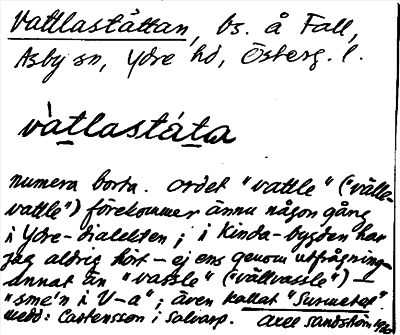 Vattlaståttan, bs. å Fall,
Asby sn, Ydre hd, Österg. l.
vàtlastáta
numera borta. Ordet "vattle" ("välle-
vattle") förekommer ännu någon gång
i Ydre-dialekten; i Kinda-bygden har
jag aldrig hört - ej ens genom utfrågning-
annat än "vassle" ("vällvassle") -
"sme'n i V-a"; även kallat "Surmetet"
medd: Castensson i Salvarp. Axel Sandström